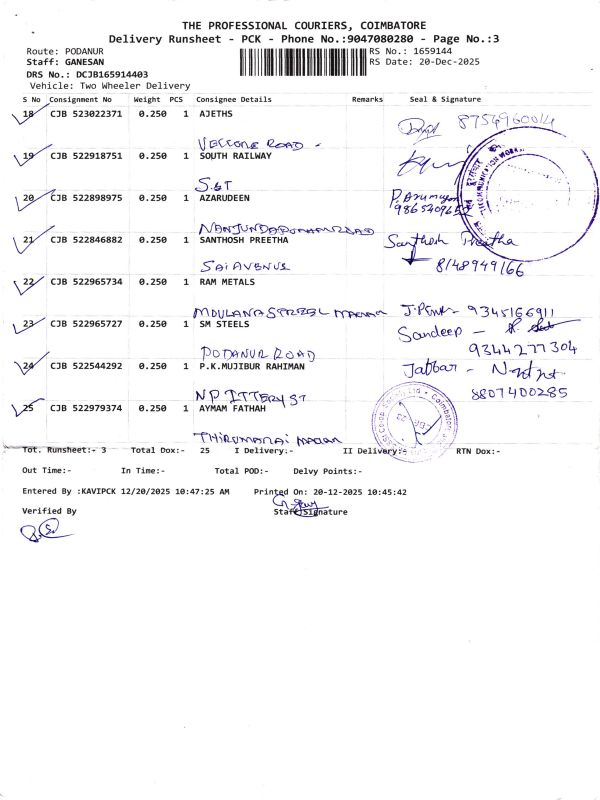 THE PROFESSIONAL COURIERS, COIMBATORE
Delivery Runsheet - PCK - Phone No.:9047080280 - Page No.:3
Route: PODANUR
RS No.: 1659144
Staff: GANESAN
RS Date: 20-Dec-2025
DRS No.: DCJB165914403
Vehicle: Two Wheeler Delivery
S No Consignment No Weight PCS Consignee Details Remarks Seal & Signature
18 CJB 523022371 0.250 1 AJETHS 8754960014
ROAD -
19 CJB 522918751 0.250 1 SOUTH RAILWAY
S&T
20 CJB 522898975 0.250 1 AZARUDEEN P. Arumugam
NANJUNDAPURAM ROAD
21 CJB 522846882 0.250 1 SANTHOSH PREETHA Santhosh Preetha
SAI AVENUE 8148949166
22 CJB 522965734 0.250 1 RAM METALS
MOULANA STREET 9345166911
23 CJB 522965727 0.250 1 SM STEELS Sandeep -
PODANUR ROAD 9344277304
24 CJB 522544292 0.250 1 P.K.MUJIBUR RAHIMAN Jabbar -
NP ITTERY ST 8807400285
25 CJB 522979374 0.250 1 AYMAM FATHAH
THIRUMARAI NAGAR
Tot. Runsheet:- 3 Total Dox:- 25 I Delivery:- II Delivery:- RTN Dox:-
Out Time:- In Time:- Total POD:- Delvy Points:-
Entered By :KAVIPCK 12/20/2025 10:47:25 AM Printed On: 20-12-2025 10:45:42
Verified By Staff Signature